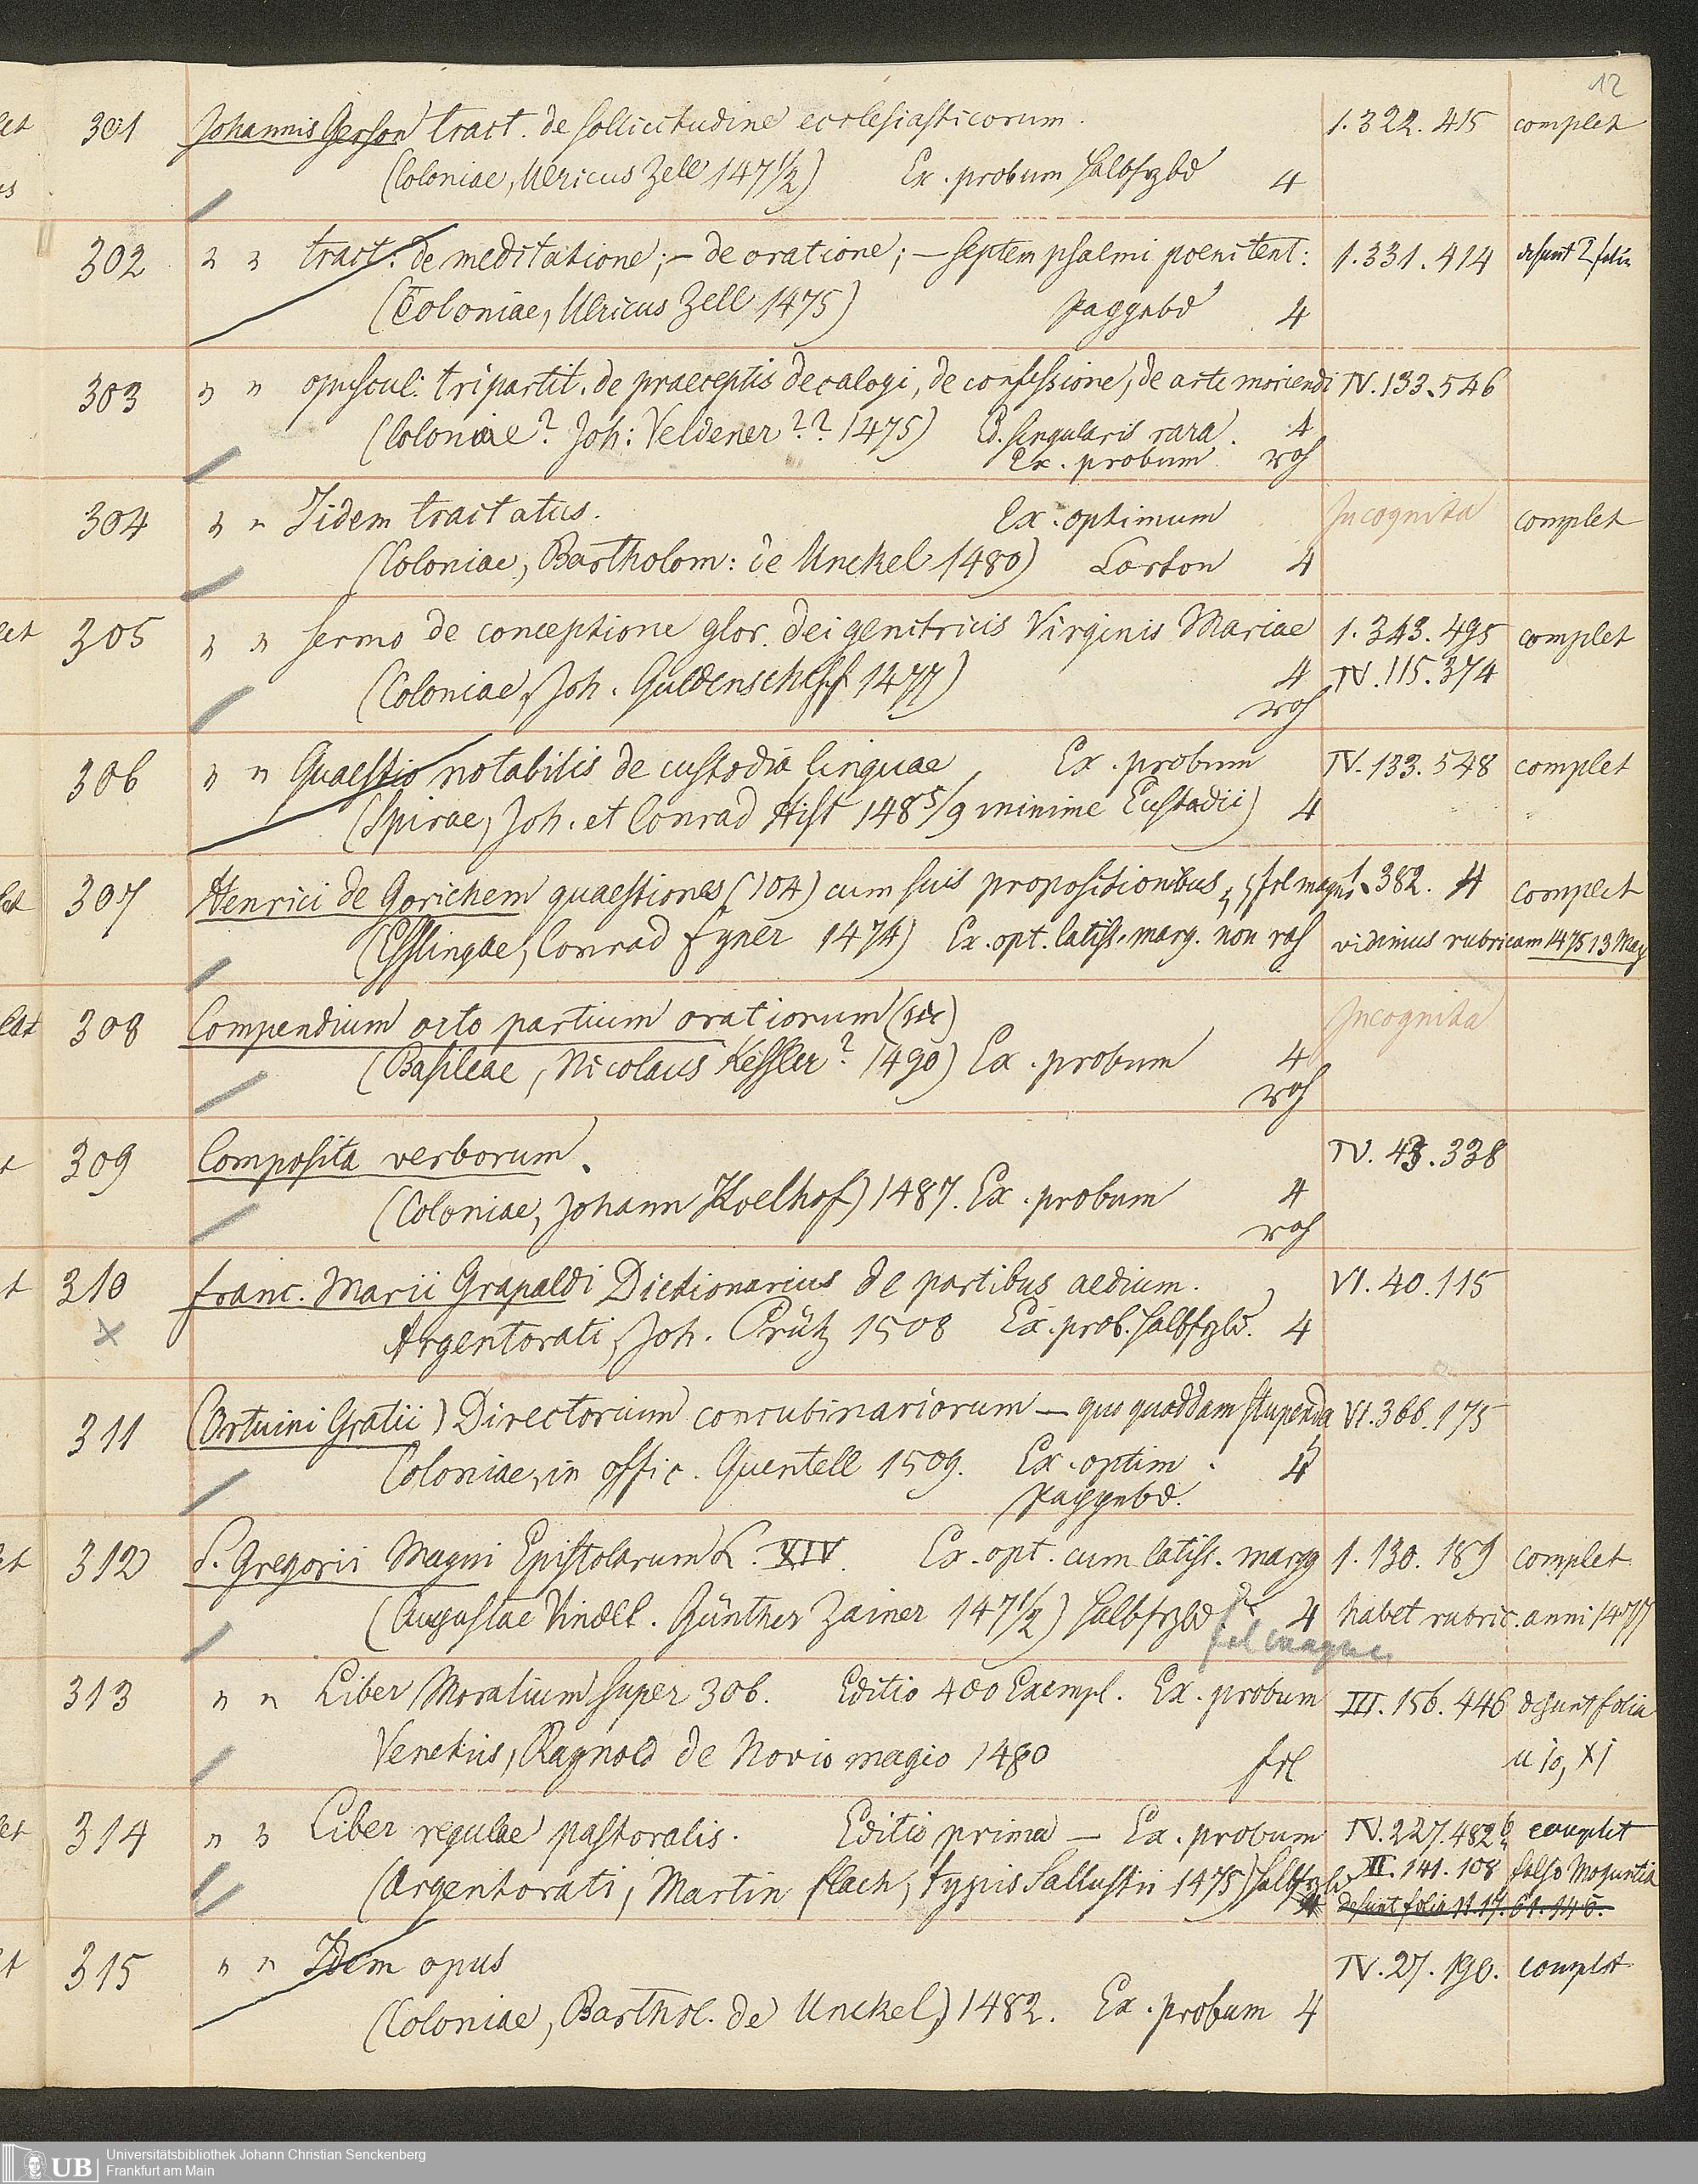 12
301 Johannis Gerson tract. de sollicitudine ecclesiasticorum. 1.322.415 complet
(Coloniae, Ulricus Zell 147½) Ex. probum Halbfrzbd 4
302 " " tract. de meditatione; – de oratione; – septem psalmi poenitent: 1.331.414 desunt 2 folia
(Coloniae, Ulricus Zell 1475) Pappebd 4
303 " " opuscul: tripartit. de praeceptis decalogi, de confessione, de arte moriendi IV.133.546
(Coloniae? Joh: Veldener?? 1475) Ed. singularis rara. 4
Ex. probum roh
304 " " Iidem tractatus. Ex. optimum Incognita complet
(Coloniae, Bartholom: de Unckel 1480) Carton 4
305 " " sermo de conceptione glor. dei genitricis Virginis Mariae 1.343.495 complet
(Coloniae, Joh. Guldenschaff 1477) 4 IV.115.374
roh
306 " " Quaestio notabilis de custodia linguae Ex. probum IV.133.548 complet
(Spirae, Joh. et Conrad Hist 148 5/9 minime Eustadii) 4
307 Henrici de Gorichem quaestiones (104) cum suis propositionibus fol magn. 1.382. 4 complet
(Esslingae, Conrad Fyner 1474) Ex. opt. latiss. marg. non roh vidimus rubricam 1475 13 May
308 Compendium octo partium orationum (sic) Incognita
(Basileae, Nicolaus Kessler? 1490) Ex. probum 4
roh
309 Composita verborum. IV. 43.338
(Coloniae, Johann Koelhof) 1487. Ex. probum 4
roh
310 Franc. Marii Grapaldi Dictionarius de partibus aedium. VI.40.115
Argentorati, Joh. Prütz 1508 Ex. prob. Halbfrzbd. 4
311 (Ortuini Gratii) Directorium concubinariorum – quo quaddam stupenda VI.366.175
Coloniae, in offic. Quentell 1509. Ex. optim. 4
Pappebd.
312 S. Gregorii Magni Epistolarum L. XIV. Ex. opt. cum latiss. margg 1.130.189 complet
(Augustae Vindel. Günther Zainer 147½) Halbfrzbd 4 habet rubric. anni 1477
fol magn.
313 " " Liber Moralium super Iob. Editio 400 Exempl. Ex. probum III.156.446 desunt folia
Venetiis, Raynold de Novio magio 1480 fol u io, x i
314 " " Liber regulae pastoralis. Editio prima – Ex. probum IV.227.482b complet
(Argentorati, Martin Flach, typis Sallustii 1475) Halbfrzbd II.141.108 falso Moguntia
4 desunt folia 11.17.61.146.
315 " " Idem opus IV.27.190. complet
(Coloniae, Barthol. de Unckel) 1482. Ex. probum 4
UB Universitätsbibliothek Johann Christian Senckenberg
Frankfurt am Main